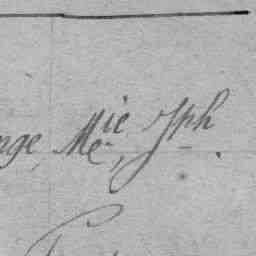 nge, Me ie, Jph.